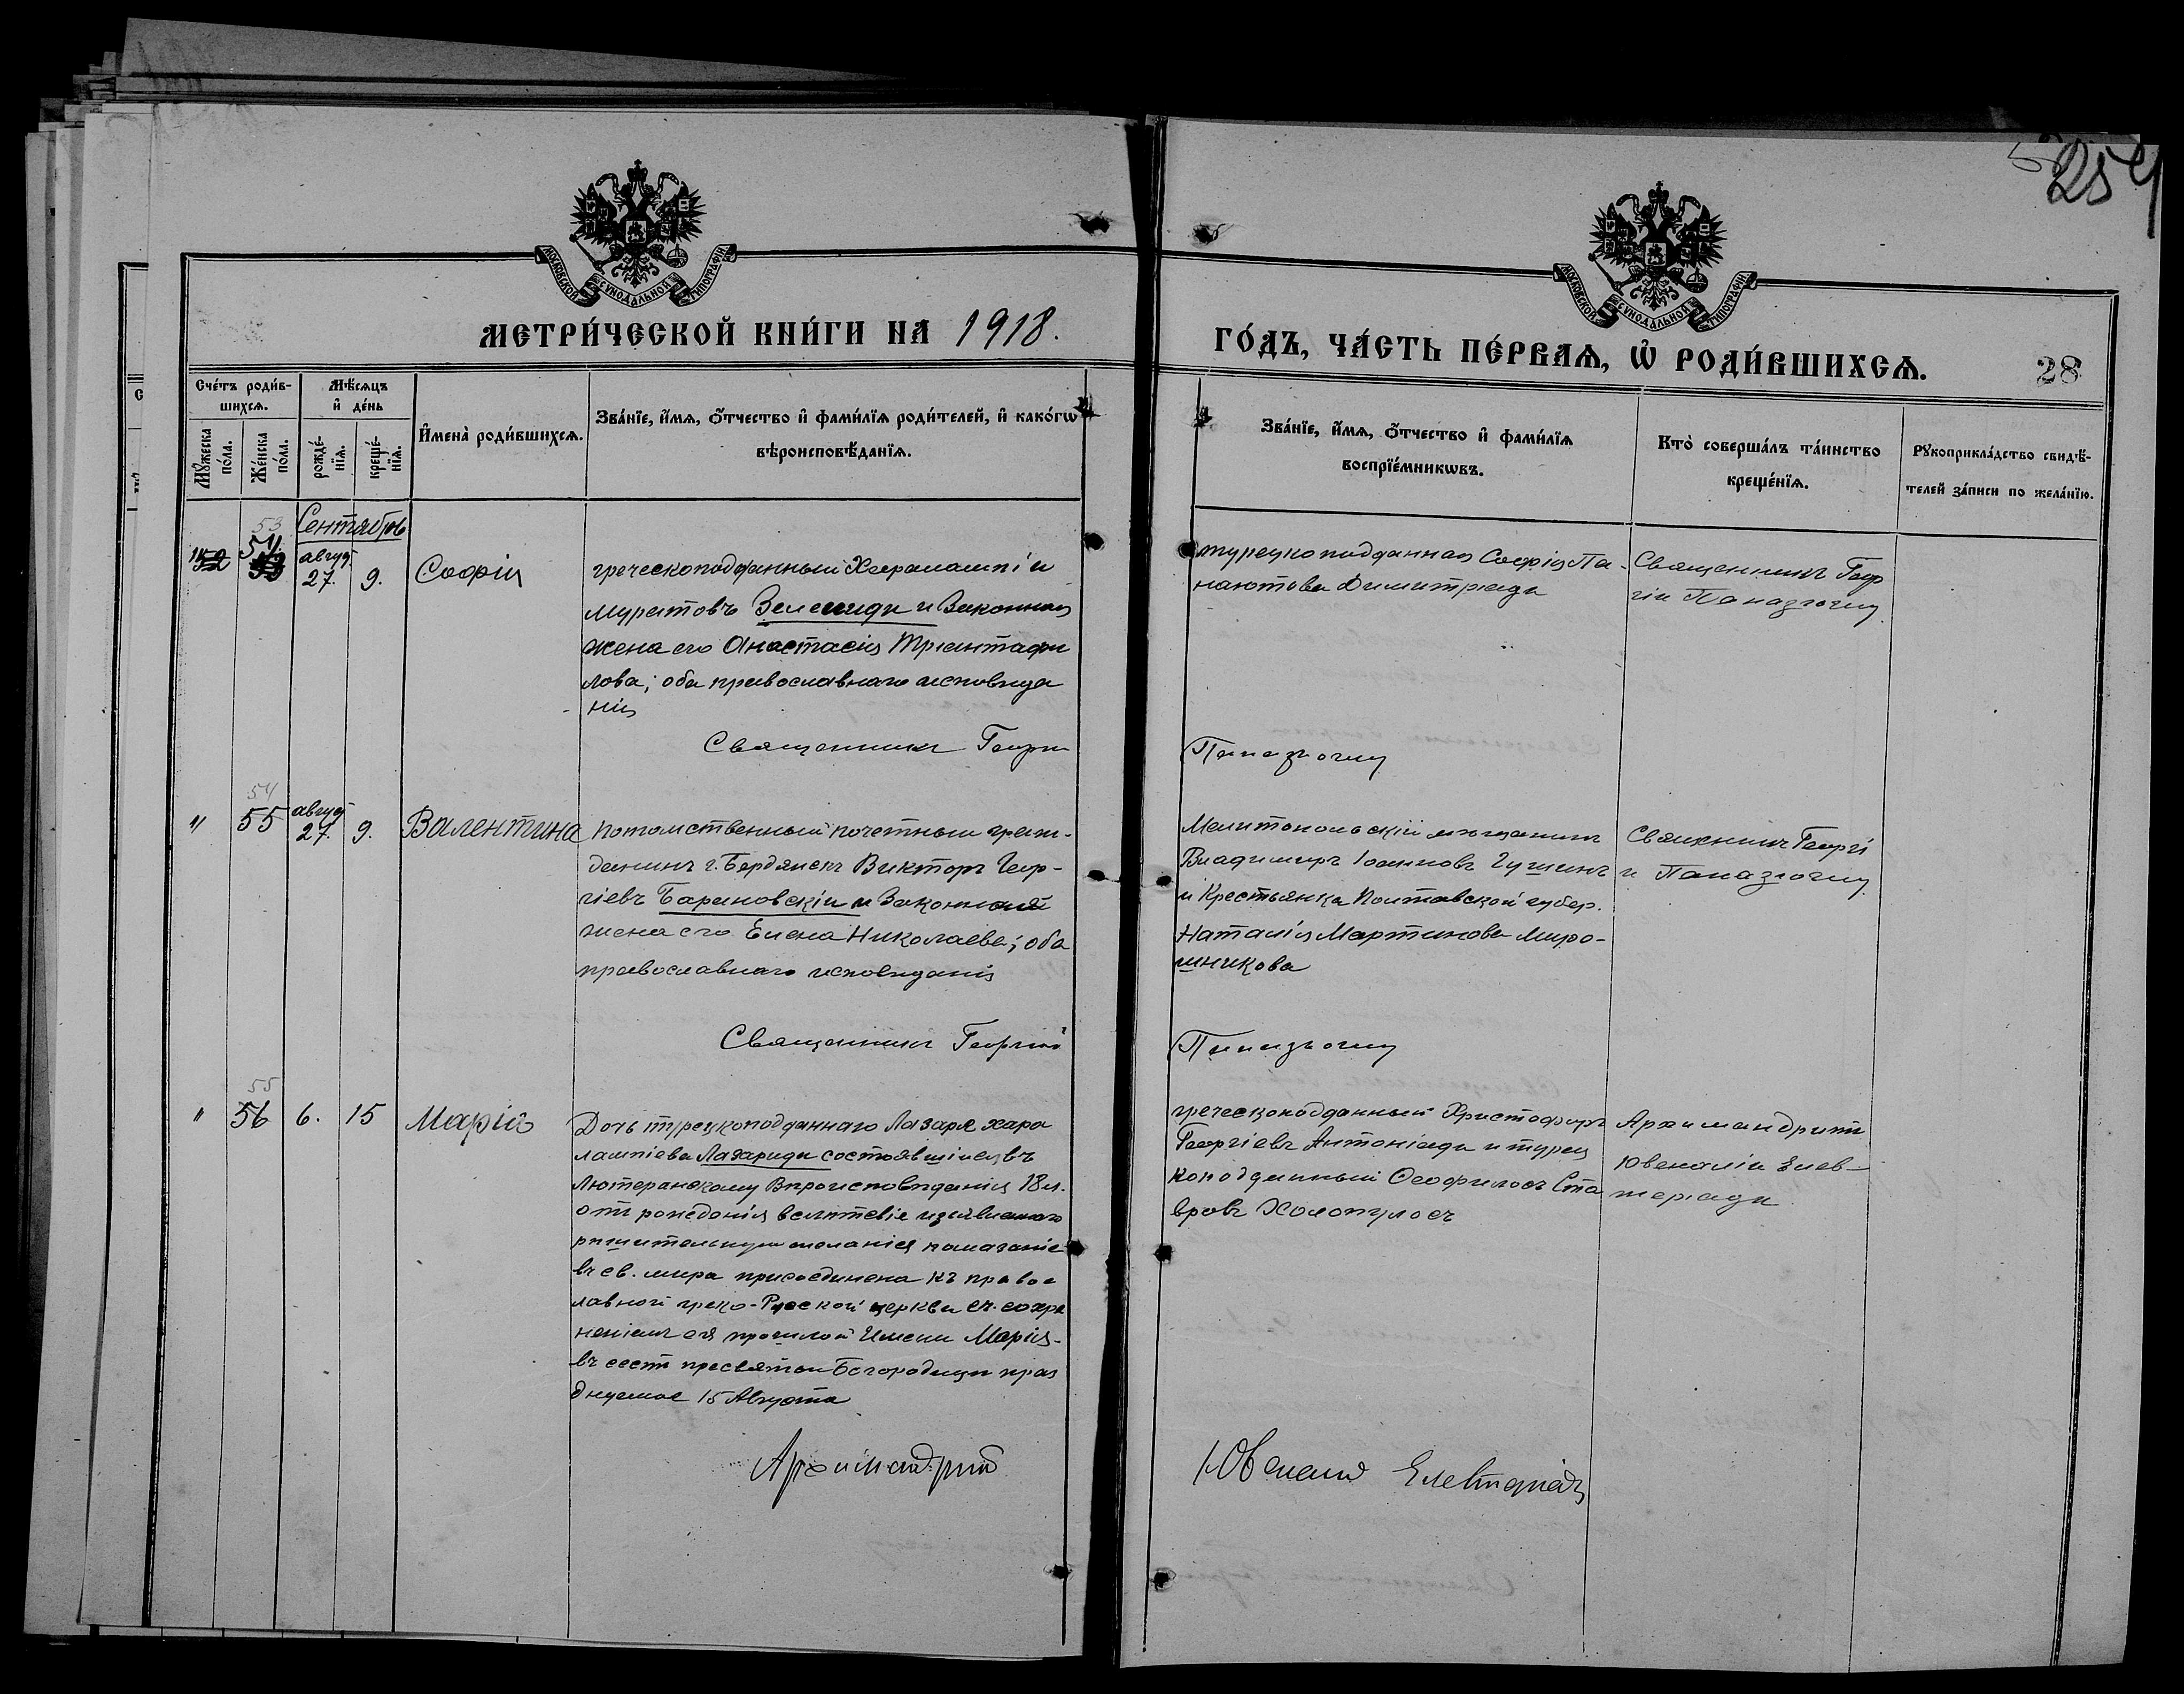 254
МОСКОВСКОЙ СѴНОДАЛЬНОЙ ТИПОГРАФІИ
МОСКОВСКОЙ СѴНОДАЛЬНОЙ ТИПОГРАФІИ
МЕТРИ́ЧЕСКОЙ КНИ́ГИ НА 1918.
ГО́ДЪ, ЧА́СТЬ ПЕ́РВАѦ, Ѡ҆ РОДИ́ВШИХСѦ.
28
Сче́тъ роди́в-
шихсѧ.
Мꙋ́жеска
по́ла.
Же́нска
по́ла.
Мѣ́сѧцъ
и҆ де́нь
рожде́-
нїѧ.
креще́-
нїѧ.
И҆мена̀ роди́вшихсѧ.
Зва́нїе, и҆́мѧ, ѻ҆́тчество и҆ фами́лїѧ роди́телей, и҆ како́гѡ
вѣроисповѣ́данїѧ.
Зва́нїе, и҆́мѧ, ѻ҆́тчество и҆ фами́лїѧ
воспрїе́мникѡвъ.
Кто̀ соверша́лъ та́инство
креще́нїѧ.
Рꙋкоприкла́дство свидѣ́-
телей за́писи по жела́нїю.
Сентябрь
53
54
авгус.
27.
9.
Софія
греческоподданный Харалампій
Муратовъ Зелениди и Законная
жена его Анастасія Триантафи
лова; оба православнаго исповѣда
нія
Священникъ Георгій
турецкоподданная Софія Па-
наютова Димитріади
Священникъ Геор
гій Папазоглу
Папазоглу
54
" 55
август
27.
9.
Валентина
Потомственный почетный граж-
данинъ г. Бердянскъ Викторъ Геор-
гіевъ Барановскій и Законная
жена его Елена Николаева; оба
православнаго исповѣданія
Священникъ Георгій
Мелитопольскій мѣщанинъ
Владимиръ Іоанновъ Гущинъ
и Крестьянка Полтавской губер.
Наталія Мартинова Миро-
шникова
Священникъ Георгі
й Папазоглу
Папазоглу
55
" 56 6. 15 Марія
Дочь турецкоподданнаго Лазаря Хара
лампіева Лазариди состоявшіися въ
Лютеранскому Вѣроисповѣданія 18 л.
отъ рожденія вслѣтствіе изъявленнаго
рѣшительнаго желанія помазаніе
въ св. мира присоединена къ правос
лавной греко-Русской церкви съ сохра
неніемъ ея прошлой Имени Марія-
въ честь пресвятой Богородицы праз
днуемое 15 Августа
Архимандритъ
греческоподданный Христофоръ
Георгіевъ Антоніади и турец
коподданный Ѳеофилосъ Ста
вровъ Холопулосъ
Архимандритъ
Ювеналій Елев-
теріади
Ювеналій Елевтеріади